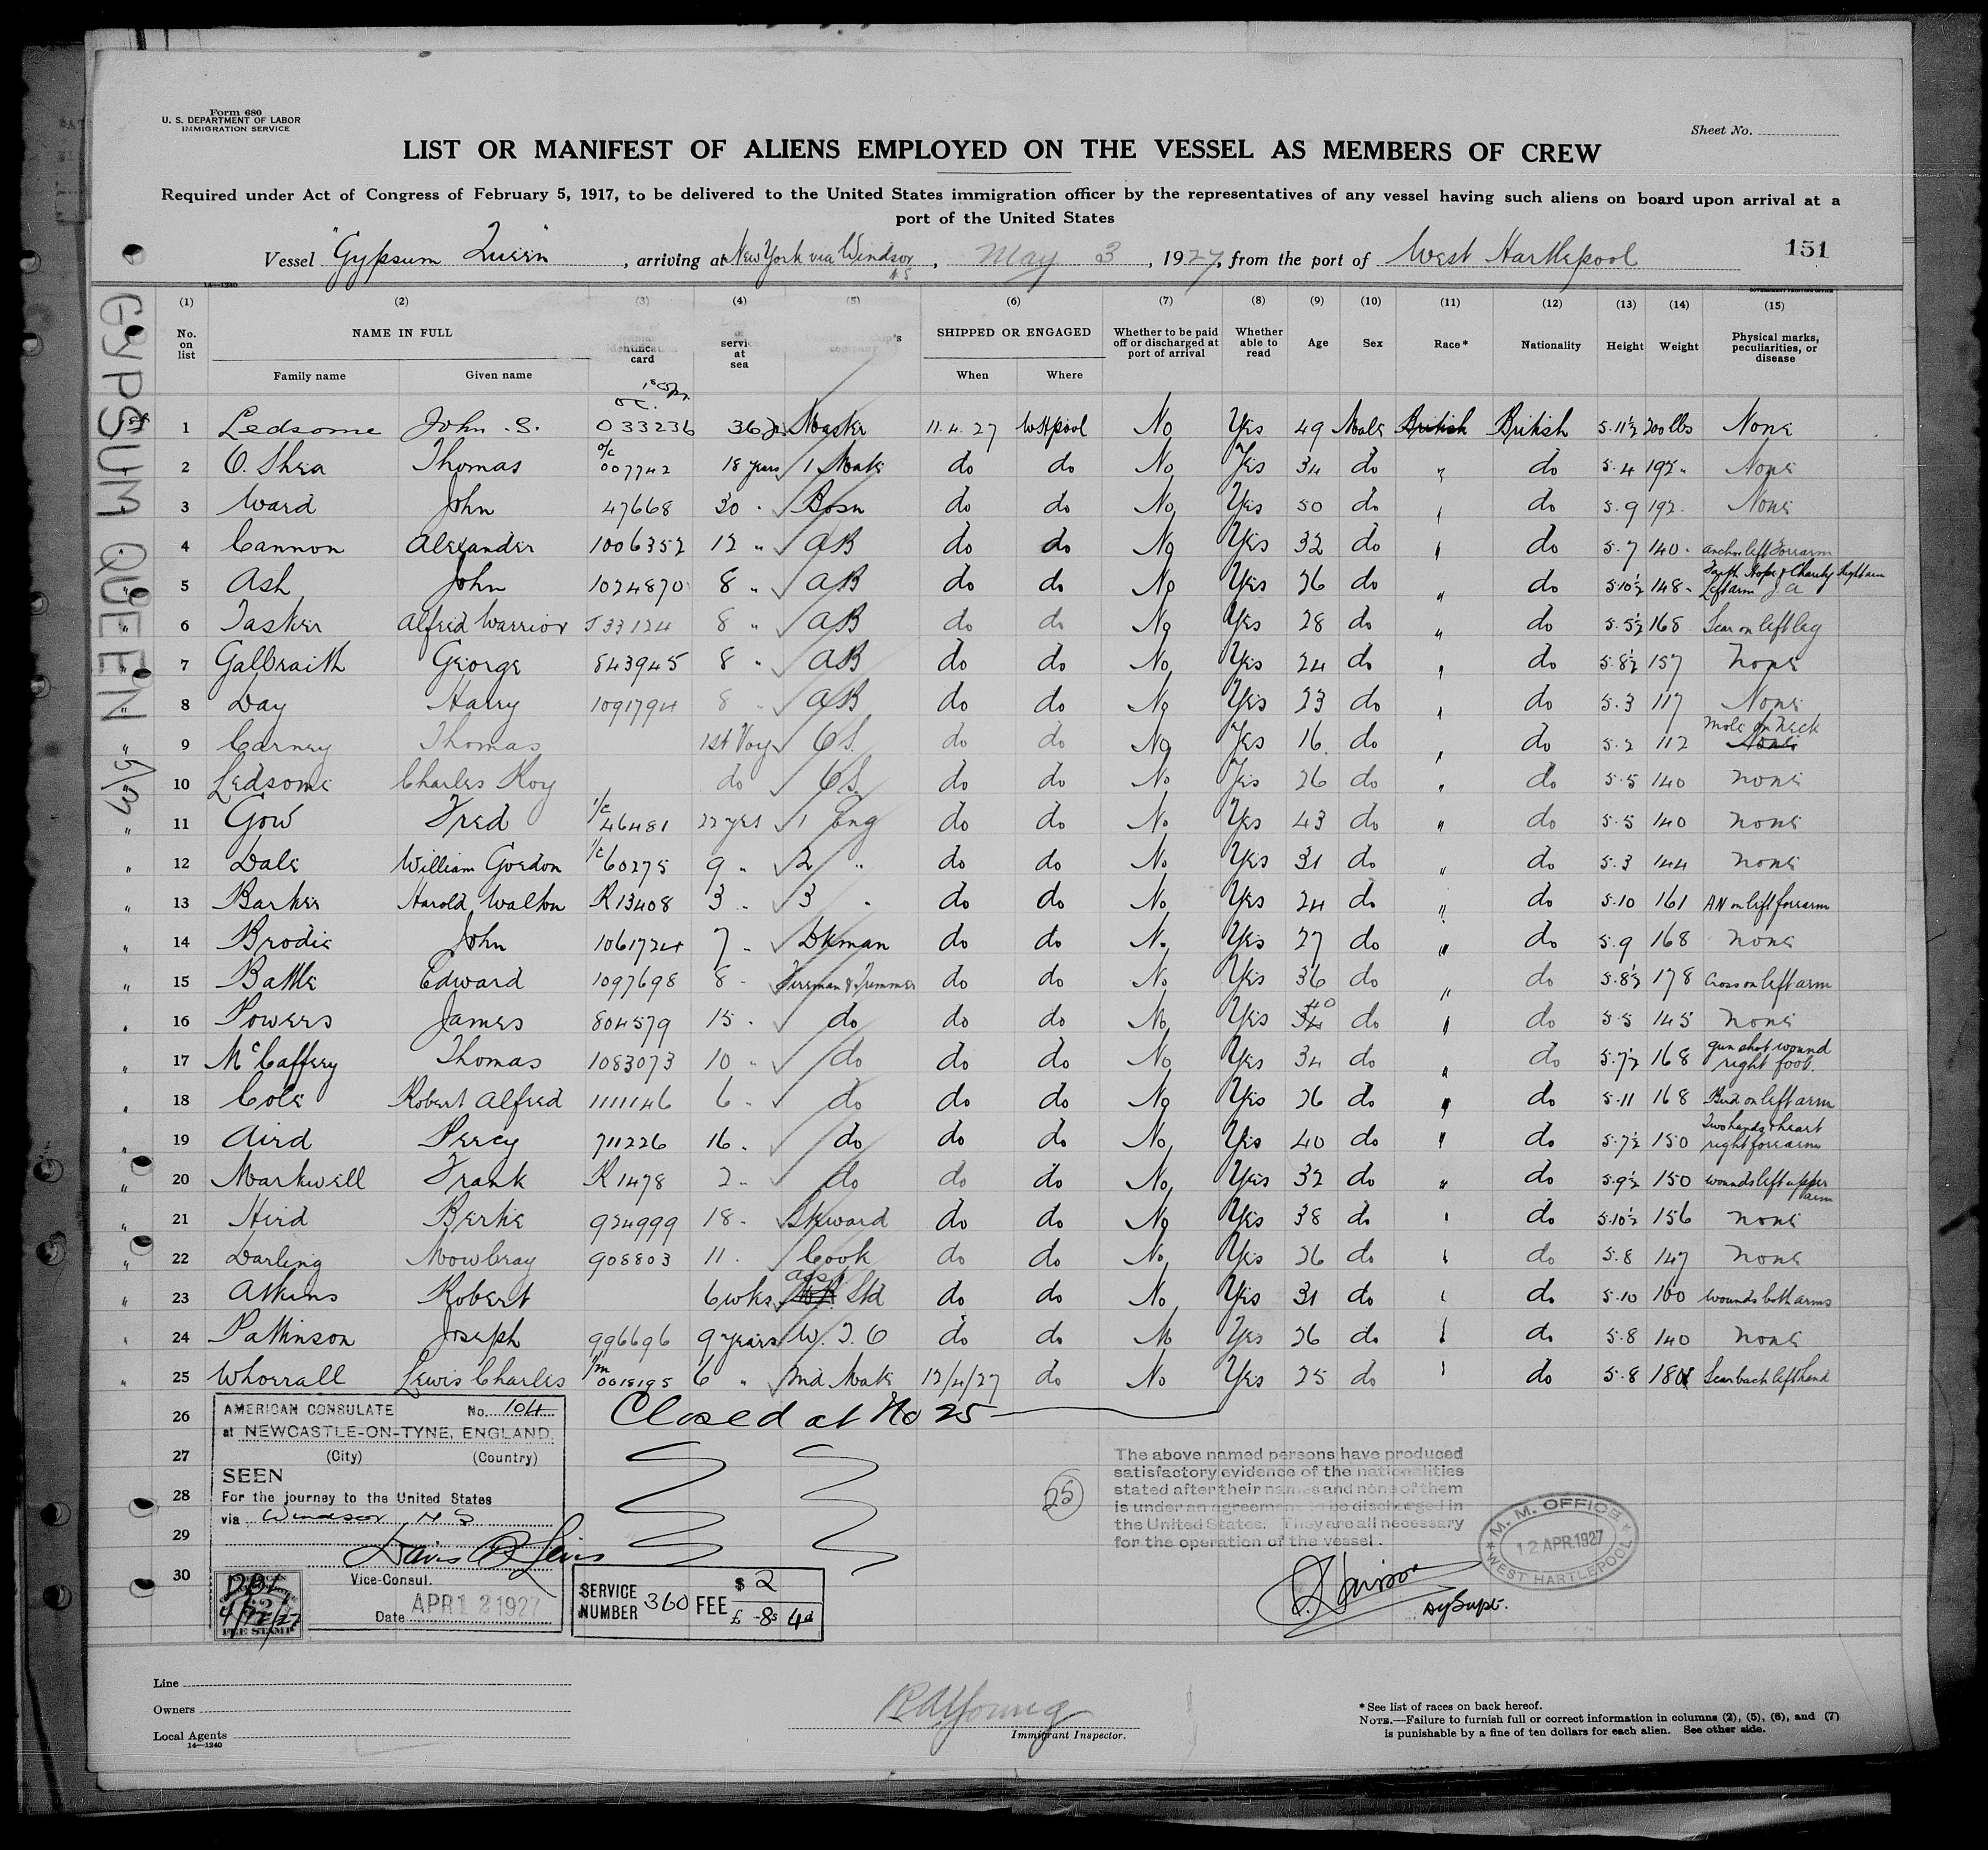 Form 680
U. S. DEPARTMENT OF LABOR
IMMIGRATION SERVICE
Sheet No.
LIST OR MANIFEST OF ALIENS EMPLOYED ON THE VESSEL AS MEMBERS OF CREW
Required under Act of Congress of February 5, 1917, to be delivered to the United States immigration officer by the representatives of any vessel having such aliens on board upon arrival at a
port of the United States
Vessel "Gypsum Queen", arriving at New York via Windsor N S, May 3, 1927, from the port of West Hartlepool
151
14—1240
GOVERNMENT PRINTING OFFICE
(1) (2) (3) (4) (5) (6) (7) (8) (9) (10) (11) (12) (13) (14) (15)
No. on list NAME IN FULL identification card service at sea company SHIPPED OR ENGAGED Whether to be paid off or discharged at port of arrival Whether able to read Age Sex Race* Nationality Height Weight Physical marks, peculiarities, or disease
Family name Given name When Where
GYPSUM QUEEN
1 Ledsome John . S. 033236 36 Master 11.4.27 W Hpool No Yes 49 Male British British 5.11½ 200 lbs None
2 O. Shea Thomas o/c 007742 18 years 1 Mate do do No Yes 34 do " do 5.4 192 " None
3 Ward John 47668 30 " Bosn do do No Yes 50 do " do 5.9 192 None
4 Cannon Alexander 1006352 12 " AB do do No Yes 32 do " do 5.7 140 " anchor left forearm
5 Ash John 1024870 8 " AB do do No Yes 26 do " do 5.10½ 148 " Faith Hope & Charity Right arm Left arm J A
6 Tasker Alfred Warrior J 33124 8 " AB do do No Yes 28 do " do 5.5½ 168 Scar on left leg
7 Galbraith George 843945 8 " AB do do No Yes 24 do " do 5.8½ 157 none
8 Day Harry 1091794 8 " AB do do No Yes 23 do " do 5.3 117 None
9 Carney Thomas 1st Voy OS. do do No Yes 16 do " do 5.2 112 mole on neck None
10 Ledsome Charles Roy do OS. do do No Yes 26 do " do 5.5 140 none
11 Gow Fred 1/c 46481 22 yrs 1 Eng do do No Yes 43 do " do 5.5 140 none
12 Dale William Gordon 1/c 60275 9 " 2 " do do No Yes 31 do " do 5.3 144 none
13 Barker Harold Walton R 13408 3 " 3 " do do No Yes 24 do " do 5.10 161 AN on left forearm
14 Brodie John 1061724 7 " Dkman do do No Yes 27 do " do 5.9 168 none
15 Battle Edward 1097698 8 " Fireman & Trimmer do do No Yes 36 do " do 5.8½ 178 Cross on left arm
16 Powers James 804579 15 " do do do No Yes 34 40 do " do 5.5 145 none
17 McCaffery Thomas 1083073 10 " do do do No Yes 34 do " do 5.7½ 168 gun shot wound right foot.
18 Cole Robert Alfred 1111146 6 " do do do No Yes 26 do " do 5.11 168 Bird on left arm
19 Aird Percy 711226 16 " do do do No Yes 40 do " do 5.7½ 150 Two hands & heart right forearm
20 Markwell Frank R 1478 2 " do do do No Yes 32 do " do 5.9½ 150 wounds left upper arm
21 Hird Bertie 924999 18 " Steward do do No Yes 38 do " do 5.10½ 156 none
22 Darling Mowbray 908803 11 " Cook do do No Yes 26 do " do 5.8 147 none
23 Atkins Robert 6 wks asst Std do do No Yes 31 do " do 5.10 160 wounds both arms
24 Pattinson Joseph 996696 9 years W. T. O do do No Yes 26 do " do 5.8 140 none
25 Whorrall Lewis Charles 0018195 6 " 2nd Mate 12/4/27 do No Yes 25 do " do 5.8 180 Scar back left hand
26 Closed at No 25
27
28
29
30
AMERICAN CONSULATE No. 104
at NEWCASTLE-ON-TYNE, ENGLAND.
(City) (Country)
SEEN
For the journey to the United States
via Windsor N S
Vice-Consul.
Date APR 12 1927
4/12/27
FEE STAMP
SERVICE NUMBER 360 FEE $ 2 £ -8s 4d
25
The above named persons have produced
satisfactory evidence of the nationalities
stated after their names and none of them
is under an agreement to be discharged in
the United States. They are all necessary
for the operation of the vessel.
M. M. OFFICE
12 APR.1927
WEST HARTLEPOOL
Dy Supt.
Line
Owners
Local Agents
14—1240
R A Young
Immigrant Inspector.
* See list of races on back hereof.
NOTE.—Failure to furnish full or correct information in columns (2), (5), (6), and (7)
is punishable by a fine of ten dollars for each alien. See other side.